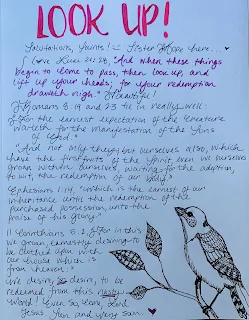 LOOK UP!
Salutations, Saints! Sister Hope here...
I love Luke 21:28, "And when these things
begin to come to pass, then look up, and
lift up your heads; for your redemption
draweth nigh." Beautiful!
Romans 8:19 and 23 tie in really well:
"For the earnest expectation of the creature
waiteth for the manifestation of the sons
of God."
"And not only they, but ourselves also, which
have the firstfruits of the Spirit, even we ourselves
groan within ourselves, waiting for the adoption,
to wit, the redemption of our body."
Ephesians 1:14, "Which is the earnest of our
inheritance until the redemption of the
purchased possession, unto the
praise of his glory."
II Corinthians 5:2, "For in this
we groan, earnestly desiring to
be clothed upon with
our house which is
from heaven:"
We desire, desire, to be
redeemed from this nasty
world! Even so, come, Lord
Jesus. Soon and very soon.